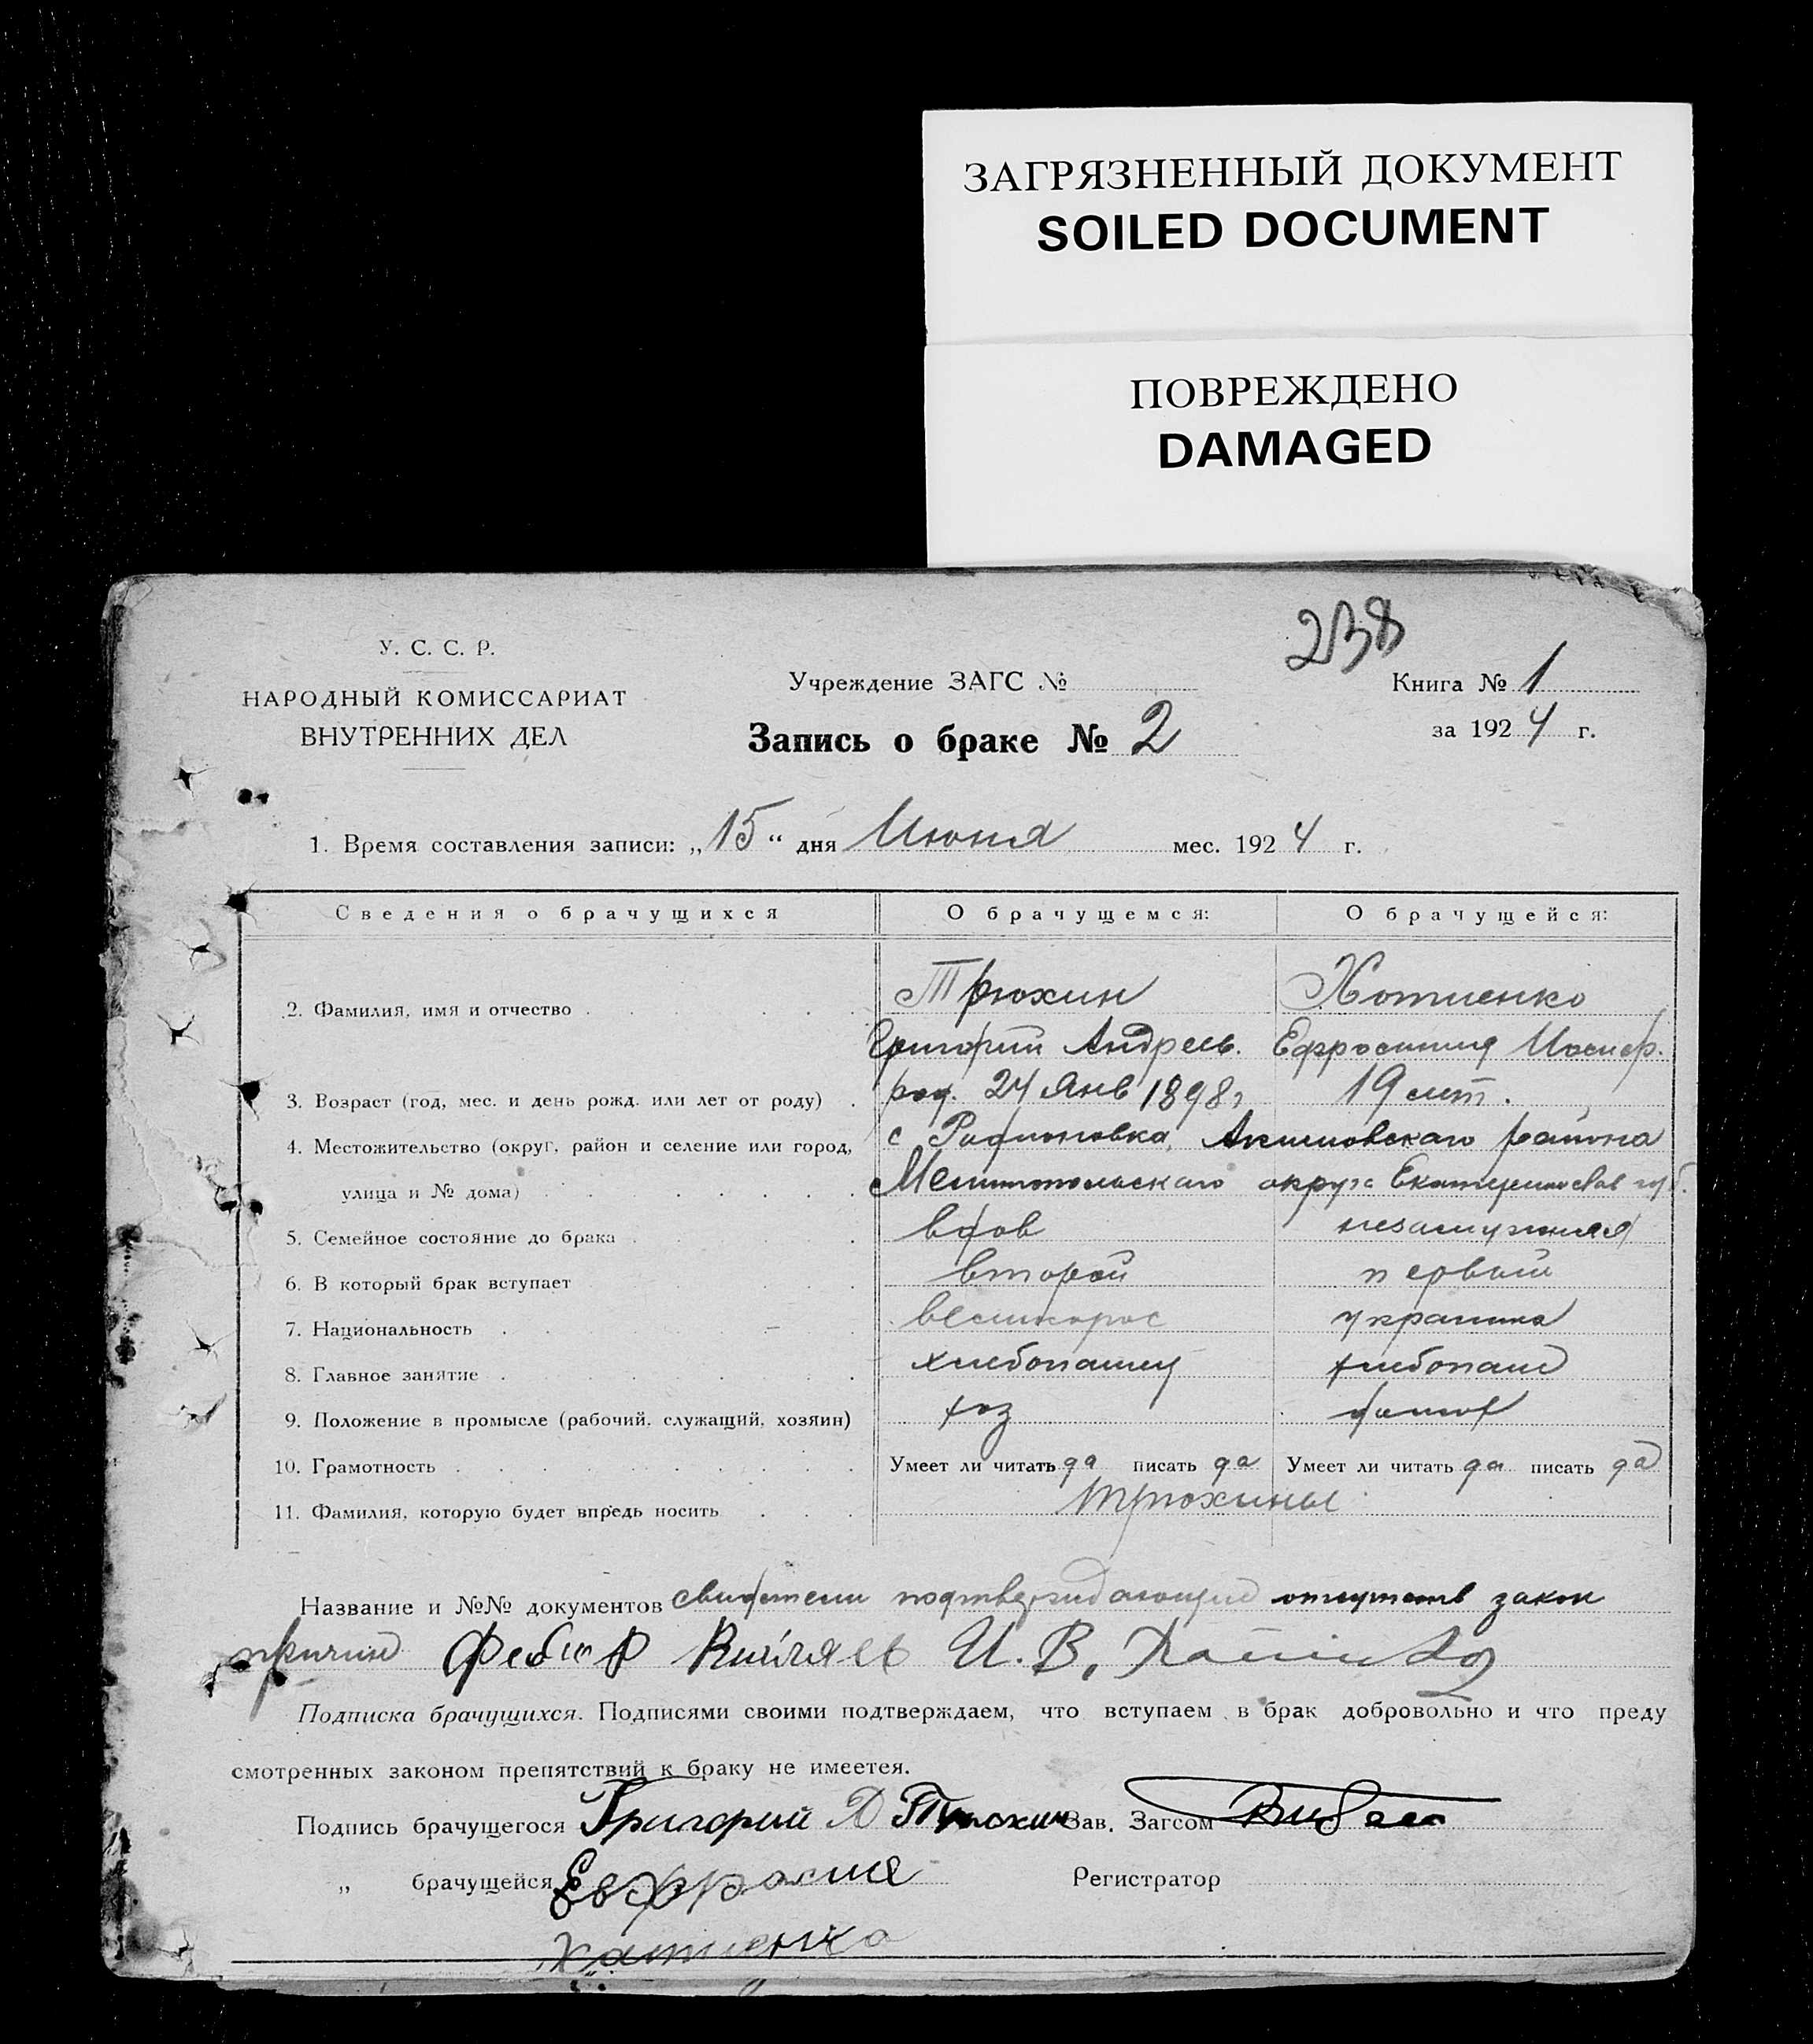 ЗАГРЯЗНЕННЫЙ ДОКУМЕНТ
SOILED DOCUMENT
ПОВРЕЖДЕНО
DAMAGED
238
У. С. С. Р.
НАРОДНЫЙ КОМИССАРИАТ
ВНУТРЕННИХ ДЕЛ
Учреждение ЗАГС №
Запись о браке № 2
Книга № 1
за 1924 г.
1. Время составления записи: „15“ дня Июня мес. 1924 г.
Сведения о брачущихся О брачущемся: О брачущейся:
2. Фамилия, имя и отчество Трюхин Хотиенко
Григорий Андреев. Ефросиния Иосиф.
3. Возраст (год, мес. и день рожд. или лет от роду) род. 24 Янв 1898 г 19 лет.
4. Местожительство (округ, район и селение или город, с Родионовка, Акимовского района
улица и № дома) Мелитопольского округа Екатеринослав губ.
5. Семейное состояние до брака вдов незамужняя
6. В который брак вступает второй первый
7. Национальность великорос украинка
8. Главное занятие хлебопашец хлебопаш
9. Положение в промысле (рабочий, служащий, хозяин) хоз
10. Грамотность Умеет ли читать да писать да Умеет ли читать да писать да
11. Фамилия, которую будет впредь носить Трюхины
Название и №№ документов свидетели подтверждающие отсутств закон
причин И. В,
Подписка брачущихся. Подписями своими подтверждаем, что вступаем в брак добровольно и что преду
смотренных законом препятствий к браку не имеется.
Подпись брачущегося Григорий А Трюхин Зав. Загсом
„ брачущейся Евфросия Регистратор
Хатиенко